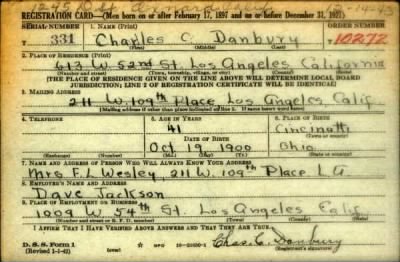 REGISTRATION CARD—(Men born on or after February 17, 1897 and on or before December 31, 1921)
SERIAL NUMBER 1. NAME (Print) ORDER NUMBER
T 331 Charles C. Danbury 10272
(First) (Middle) (Last)
2. PLACE OF RESIDENCE (Print)
613 W. 52nd St. Los Angeles California
(Number and street) (Town, township, village, or city) (County) (State)
[THE PLACE OF RESIDENCE GIVEN ON THE LINE ABOVE WILL DETERMINE LOCAL BOARD
JURISDICTION; LINE 2 OF REGISTRATION CERTIFICATE WILL BE IDENTICAL]
3. MAILING ADDRESS
211 W. 109th Place Los Angeles, Calif.
[Mailing address if other than place indicated on line 2. If same insert word same]
4. TELEPHONE 5. AGE IN YEARS 6. PLACE OF BIRTH
41 Cincinatti
DATE OF BIRTH (Town or county)
Oct 19, 1900 Ohio
(Exchange) (Number) (Mo.) (Day) (Yr.) (State or country)
7. NAME AND ADDRESS OF PERSON WHO WILL ALWAYS KNOW YOUR ADDRESS
Mrs F. L. Wesley, 211 W. 109th Place L.A.
8. EMPLOYER'S NAME AND ADDRESS
Dave Jackson
9. PLACE OF EMPLOYMENT OR BUSINESS
1009 W. 54th St. Los Angeles Calif.
(Number and street or R. F. D. number) (Town) (County) (State)
I AFFIRM THAT I HAVE VERIFIED ABOVE ANSWERS AND THAT THEY ARE TRUE.
D. S. S. Form 1
(Revised 1-1-42) GPO Chas. C. Danbury
(Registrant's signature)